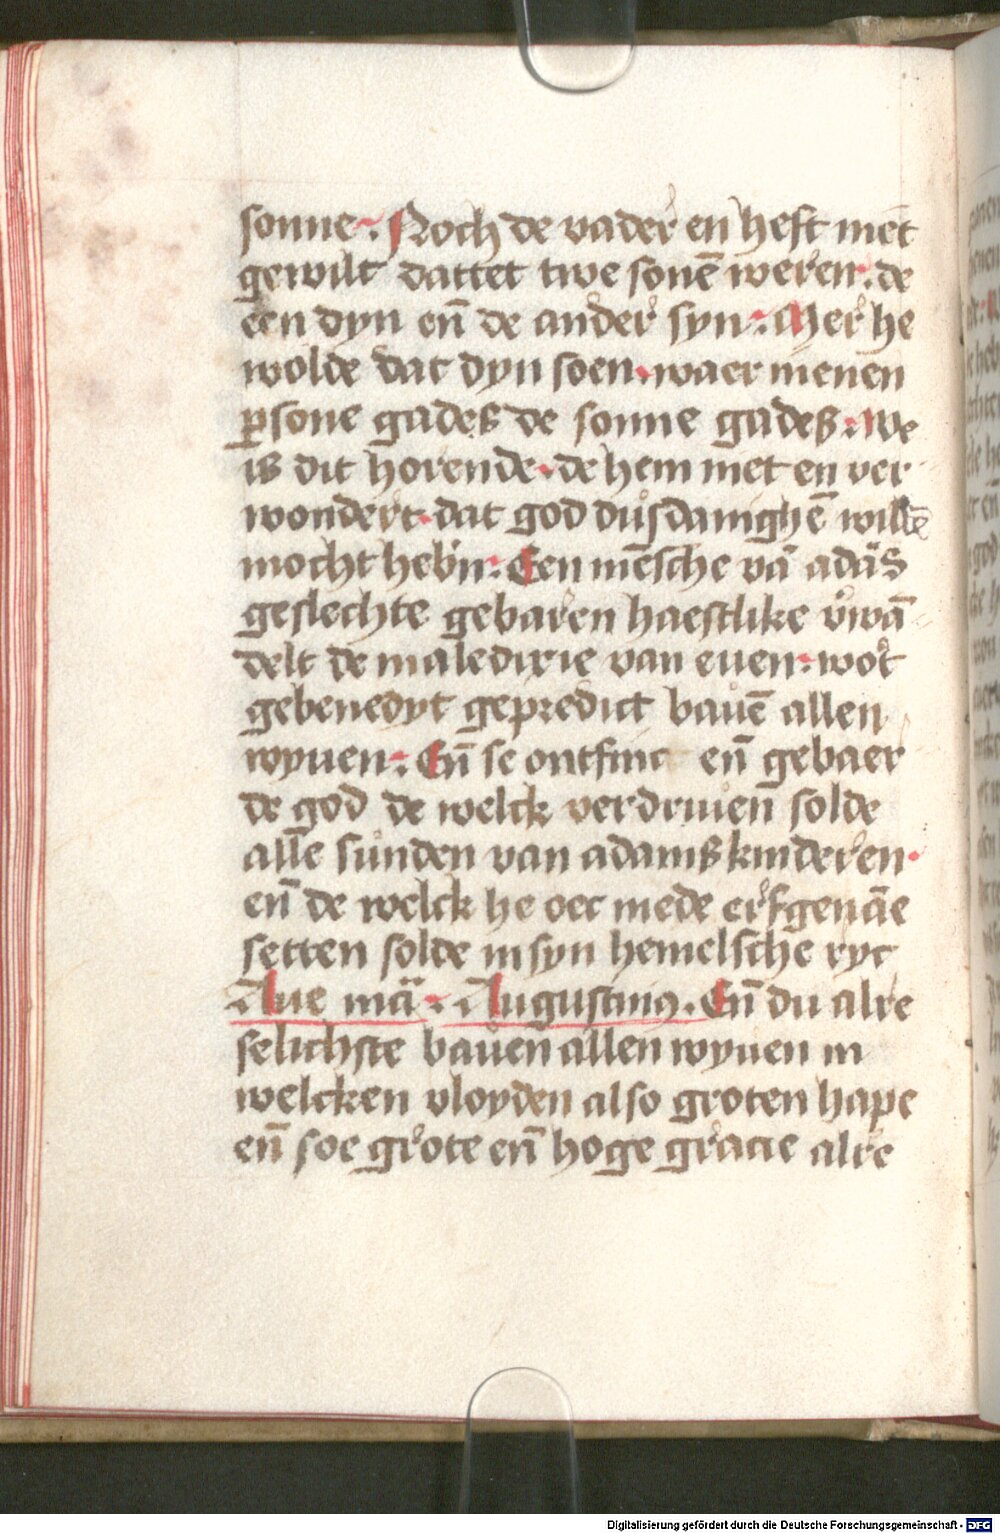 sonne. Noch de vader en heft niet
gewilt dattet twe sonē weren. de
een dyn en̄ de ander syn. Mer he
wolde dat dyn soen. waer inenen
ꝑsone gades de sonne gades. We
is dit horende. de hem niet en ver
wondert. dat god důsdanighē willē
mocht heb̄n. Een mēsche vā adās
geslechte gebaren haestlike v̊wā
delt de maledixie van euen. wort
gebenedyt gepredict bauē allen
wyuen. En̄ se ontfinc en̄ gebaer
de god de welck verdriuen solde
alle sunden van adams kinderen.
en̄ de welck he oec mede erfgenāe
setten solde in syn hemelsche ryc
Aue mā. Augustinꝰ. En̄ du alre
selichste bauen allen wyuen in
welcken vloyden also groten hape
en̄ soe grote en̄ hoge gracie alre
Digitalisierung gefördert durch die Deutsche Forschungsgemeinschaft - DFG